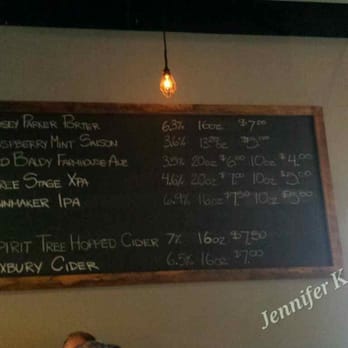 Parker Porter 6.3% 16oz $7.00
Raspberry Mint Saison 3.6%
Old Baldy Farmhouse Ale 3.5% 20oz $6.00 10oz $4.00
Stage Xpa 4.6% 20oz $7.00 10oz $5.00
nmaker Ipa 6.9% 16oz $7.50 10oz $5.50
Spirit Tree Hopped Cider 7% 16oz $7.50
xbury Cider 6.5% 16oz $7.00
Jennifer K